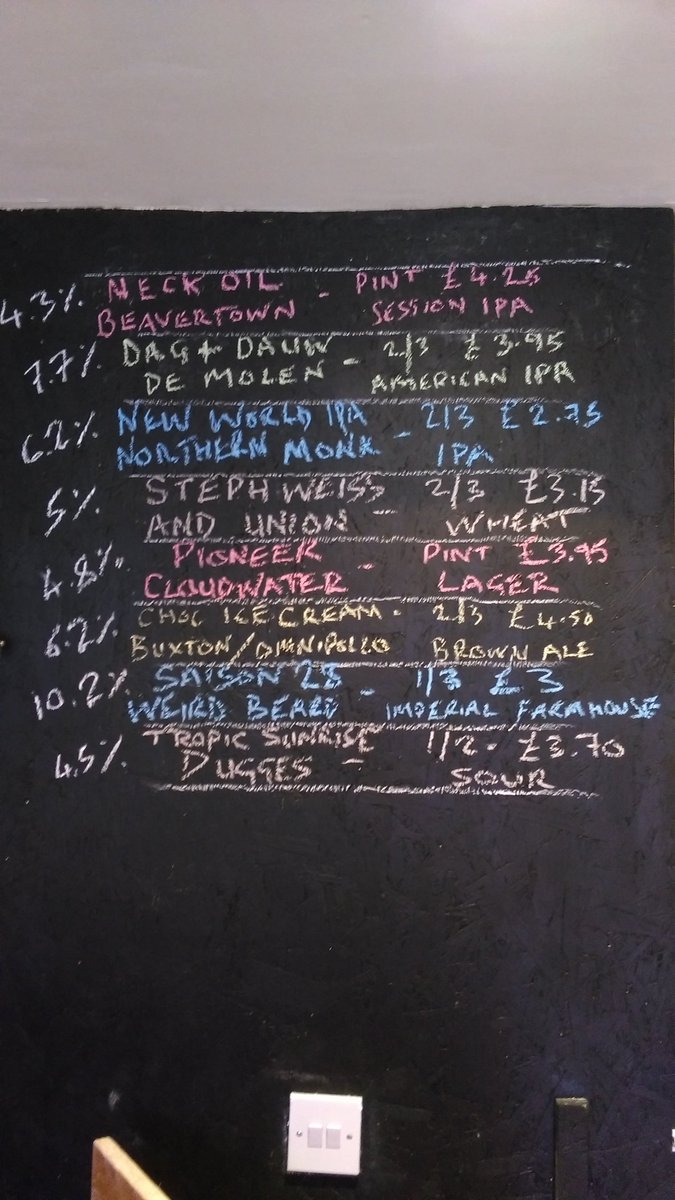 4.3% NECK OIL - PINT £4.25
BEAVERTOWN SESSION IPA
7.7% DAG + DAUW - 2/3 £3.95
DE MOLEN AMERICAN IPA
6.2% NEW WORLD IPA - 2/3 £2.75
NORTHERN MONK IPA
5% STEPH WEISS - 2/3 £3.15
AND UNION WHEAT
4.8% PIONEER - PINT £3.95
CLOUDWATER LAGER
6.2% CHOC ICE CREAM - 2/3 £4.50
BUXTON/OMNIPOLLO BROWN ALE
10.2% SAISON 28 - 1/3 £3
WEIRD BEARD IMPERIAL FARMHOUSE
4.5% TROPIC SUNRISE - 1/2 - £3.70
DUGGES SOUR